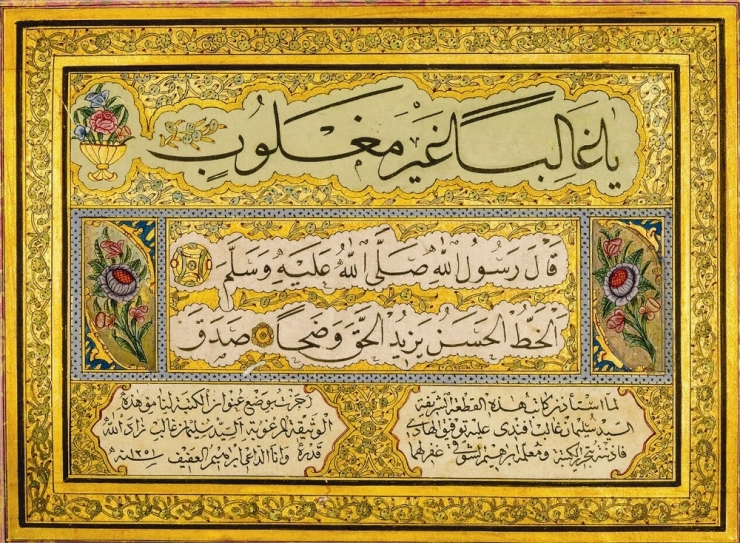 يَا غَالِبًا غَيْرَ مَغْلُوبٍ
قَالَ رَسُولُ اللّٰهِ صَلَّى اللّٰهُ عَلَيْهِ وَسَلَّمَ
اَلْخَطُّ الْحَسَنُ يَزِيدُ الْحَقَّ وَضَحًا صَدَقَ
لما استأذن كاتب هذه القطعة الشريفة
السيد سليمان غالب افندى الهادى
فاذنته الكتبة ومعلمه ابراهيم الشوقى غفر لهما
رخصت بوضع عنوان الكتبة هذه
الوثيقة المرغوبة السيد سليمان غالب زاد الله
قدره وانا الداعى ابراهيم العفيف سنة ١٢٥١